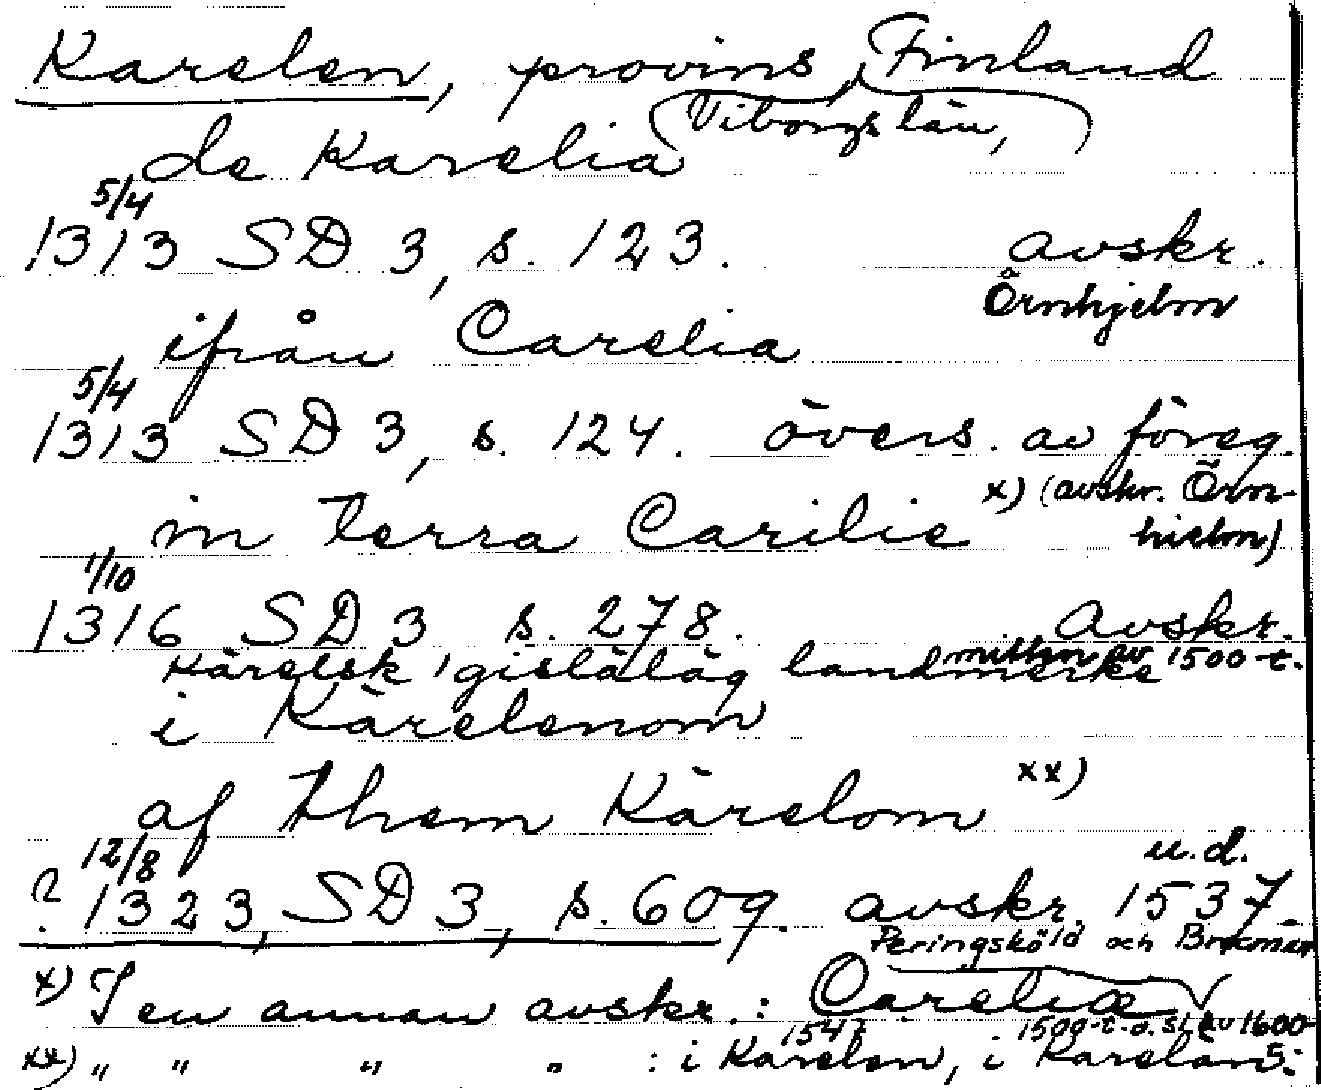 Karelen, provins, Finland
Viborgs län,
de Karelia
5/4
1313 SD 3, s. 123. avskr.
Örnhjelm
ifrån Carelia
5/4
1313 SD 3, s. 124. övers. av föreg.
x) (avskr. Örn-
in terra Carilie hielm)
1/10
1316 SD 3 s. 278. Avskr.
mitten av 1500-t.
Kärelsk gislalag landmerke
i Kärelenom
af them Kärelom xx)
12/8 u.d.
? 1323, SD 3, s. 609. avskr. 1537.
Peringsköld och Brocman
x) I en annan avskr.: Careliæ
1547 1500-t. o. sl. av 1600-
xx) " " " " : i Karelen, i Karelan